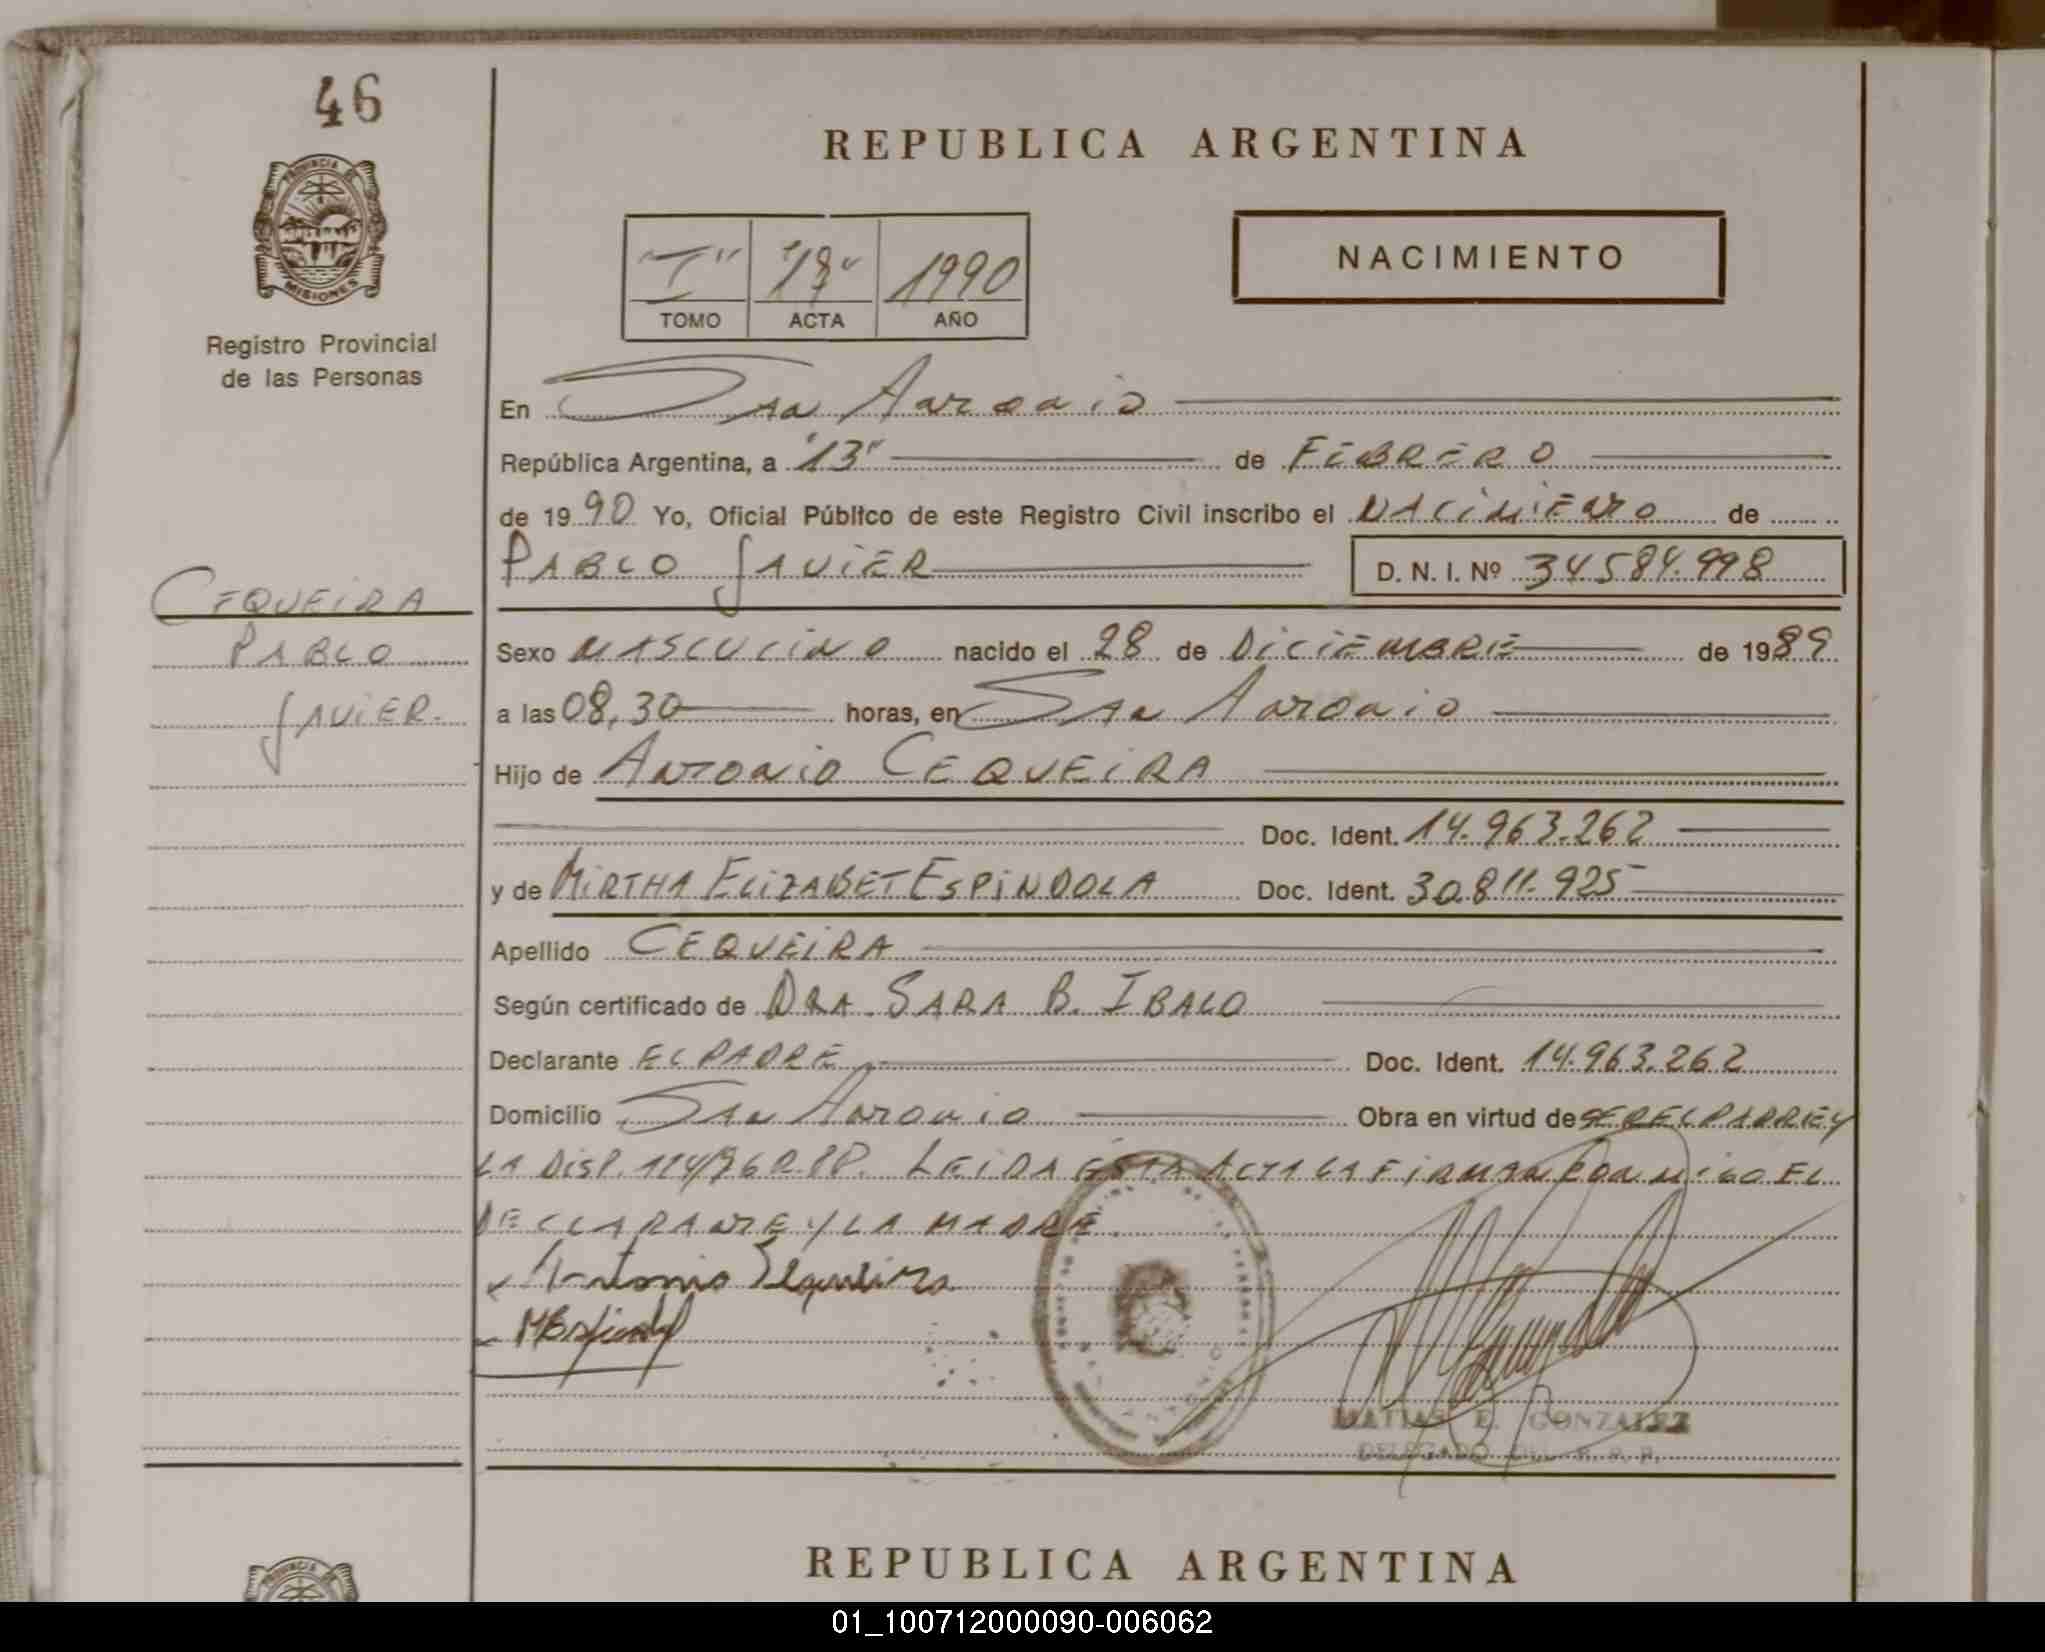 46
PROVINCIA DE
MISIONES
Registro Provincial
de las Personas
REPUBLICA ARGENTINA
"I" 1990
TOMO ACTA AÑO
NACIMIENTO
En San Antonio
República Argentina, a "13" de FEBRERO
de 1990 Yo, Oficial Público de este Registro Civil inscribo el NACIMIENTO de
PABLO JAVIER D. N. I. Nº 34584.998
CEQUEIRA
PABLO
JAVIER.
Sexo MASCULINO nacido el 28 de DICIEMBRE de 1989
a las 08,30 horas, en San Antonio
Hijo de ANTONIO CEQUEIRA
Doc. Ident. 14.963.262
y de MIRTHA ELIZABET ESPINDOLA Doc. Ident. 30.811.925
Apellido CEQUEIRA
Según certificado de DRA. SARA B. IBALO
Declarante EL PADRE Doc. Ident. 14.963.262
Domicilio San Antonio Obra en virtud de SER EL PADRE Y
LA DISP. 114/76 R.P.P. LEIDA ESTA ACTA LA FIRMAN CON MIGO EL
DECLARANTE Y LA MADRE.
Antonio Sequeira
MEspindol
MATIAS E. GONZALEZ
DELEGADO DEL R. P. P.
REPUBLICA ARGENTINA
PROVINCIA DE
01_100712000090-006062